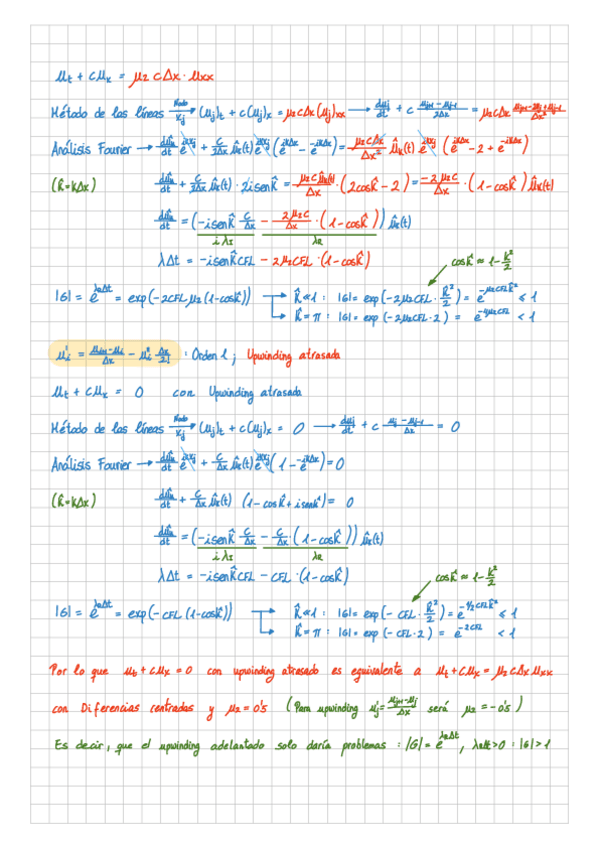 μt + cμx = μ2 cΔx · μxx
Método de las líneas —Nodo xj→ (μj)t + c(μj)x = μ2 cΔx (μj)xx → dμj/dt + c (μj+1 - μj-1)/2Δx = μ2 cΔx (μj+1 - 2μj + μj-1)/Δx²
Análisis Fourier → dûk/dt e^ikxj + c/2Δx ûk(t) e^ikxj (e^ikΔx - e^-ikΔx) = μ2 cΔx/Δx² ûk(t) e^ikxj (e^ikΔx - 2 + e^-ikΔx)
(k̂ = kΔx) dûk/dt + c/2Δx ûk(t) · 2i sen k̂ = μ2 c ûk(t)/Δx · (2cos k̂ - 2) = -2 μ2 c/Δx · (1 - cos k̂) ûk(t)
dûk/dt = (-i sen k̂ c/Δx - 2μ2 c/Δx · (1 - cos k̂)) ûk(t)
i λI λR
λΔt = -i sen k̂ CFL - 2μ2 CFL · (1 - cos k̂)
cos k̂ ≈ 1 - k̂²/2
|G| = e^λRΔt = exp(-2CFL μ2 (1 - cos k̂)) → k̂ ≪ 1 : |G| = exp(-2μ2 CFL · k̂²/2) = e^-μ2 CFL k̂² ≤ 1
→ k̂ = π : |G| = exp(-2μ2 CFL · 2) = e^-4μ2 CFL < 1
μi' = (μi+1 - μi)/Δx - μi'' Δx/2! : Orden 1 ; Upwinding atrasada
μt + cμx = 0 con Upwinding atrasada
Método de las líneas —Nodo xj→ (μj)t + c(μj)x = 0 → dμj/dt + c (μj - μj-1)/Δx = 0
Análisis Fourier → dûk/dt e^ikxj + c/Δx ûk(t) e^ikxj (1 - e^-ikΔx) = 0
(k̂ = kΔx) dûk/dt + c/Δx ûk(t) (1 - cos k̂ + i sen k̂) = 0
dûk/dt = (-i sen k̂ c/Δx - c/Δx · (1 - cos k̂)) ûk(t)
i λI λR
λΔt = -i sen k̂ CFL - CFL · (1 - cos k̂)
cos k̂ ≈ 1 - k̂²/2
|G| = e^λRΔt = exp(-CFL (1 - cos k̂)) → k̂ ≪ 1 : |G| = exp(-CFL · k̂²/2) = e^-1/2 CFL k̂² ≤ 1
→ k̂ = π : |G| = exp(-CFL · 2) = e^-2CFL < 1
Por lo que μt + cμx = 0 con upwinding atrasado es equivalente a μt + cμx = μ2 cΔx μxx
con Diferencias centradas y μ2 = 0'5 (Para upwinding μj' = (μj+1 - μj)/Δx será μ2 = -0'5)
Es decir, que el upwinding adelantado solo daría problemas : |G| = e^λRΔt , λRΔt > 0 : |G| > 1